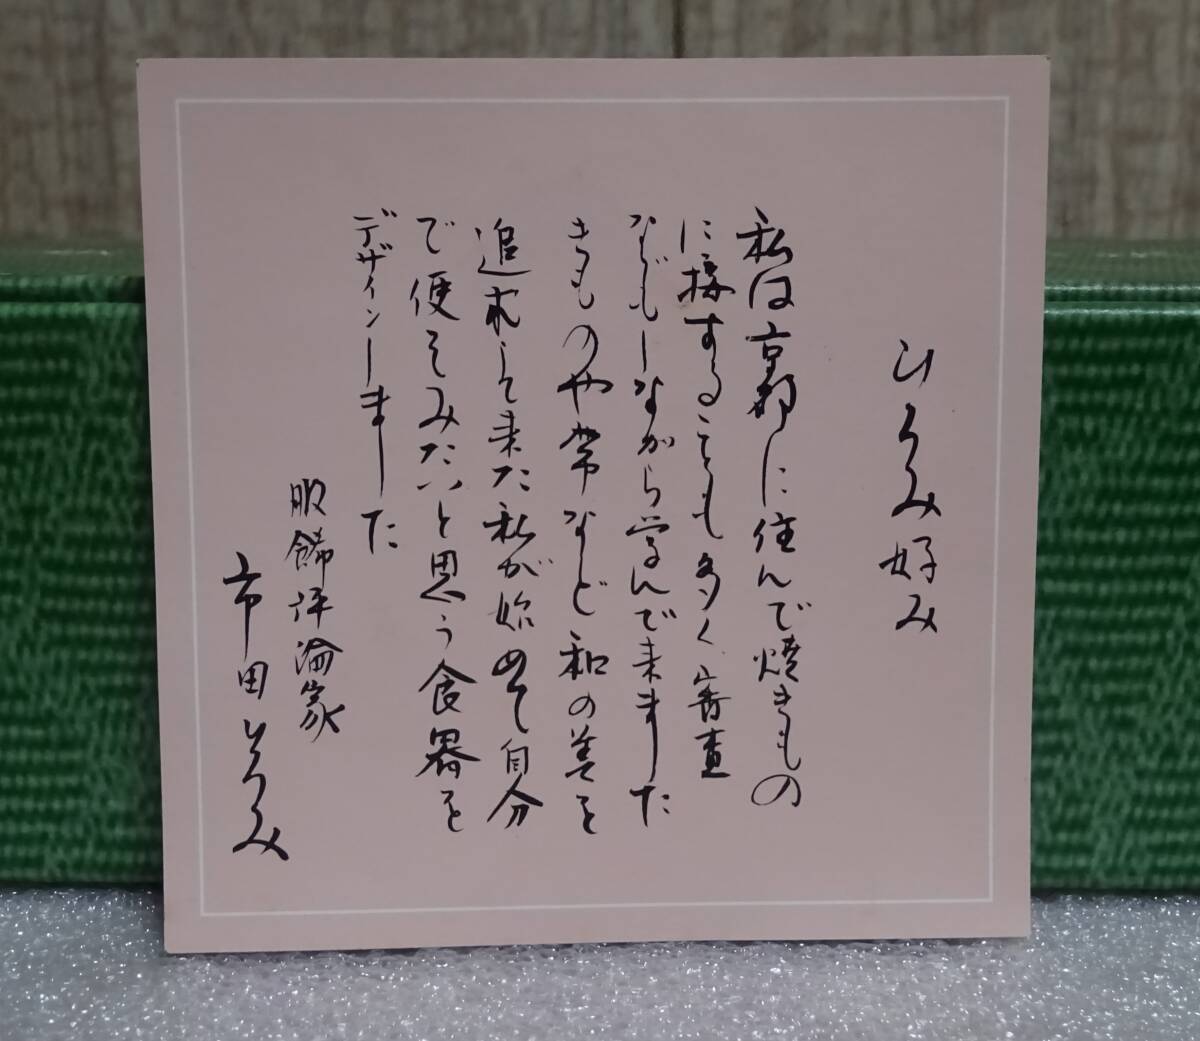 ひろみ好み
私は京都に住んで焼きもの
に接することも多く審査
などもしながら学んで来ました
きものや帯など和の美を
追求して来た私が始めて自分
で使ってみたいと思う食器を
デザインしました
服飾評論家
市田ひろみ